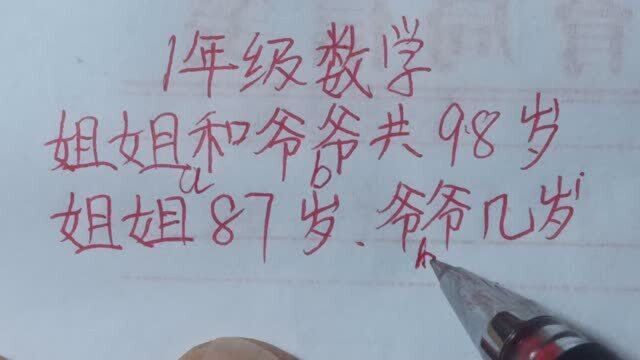 1年级数学
姐姐和爷爷共98岁
a b
姐姐87岁、爷爷几岁